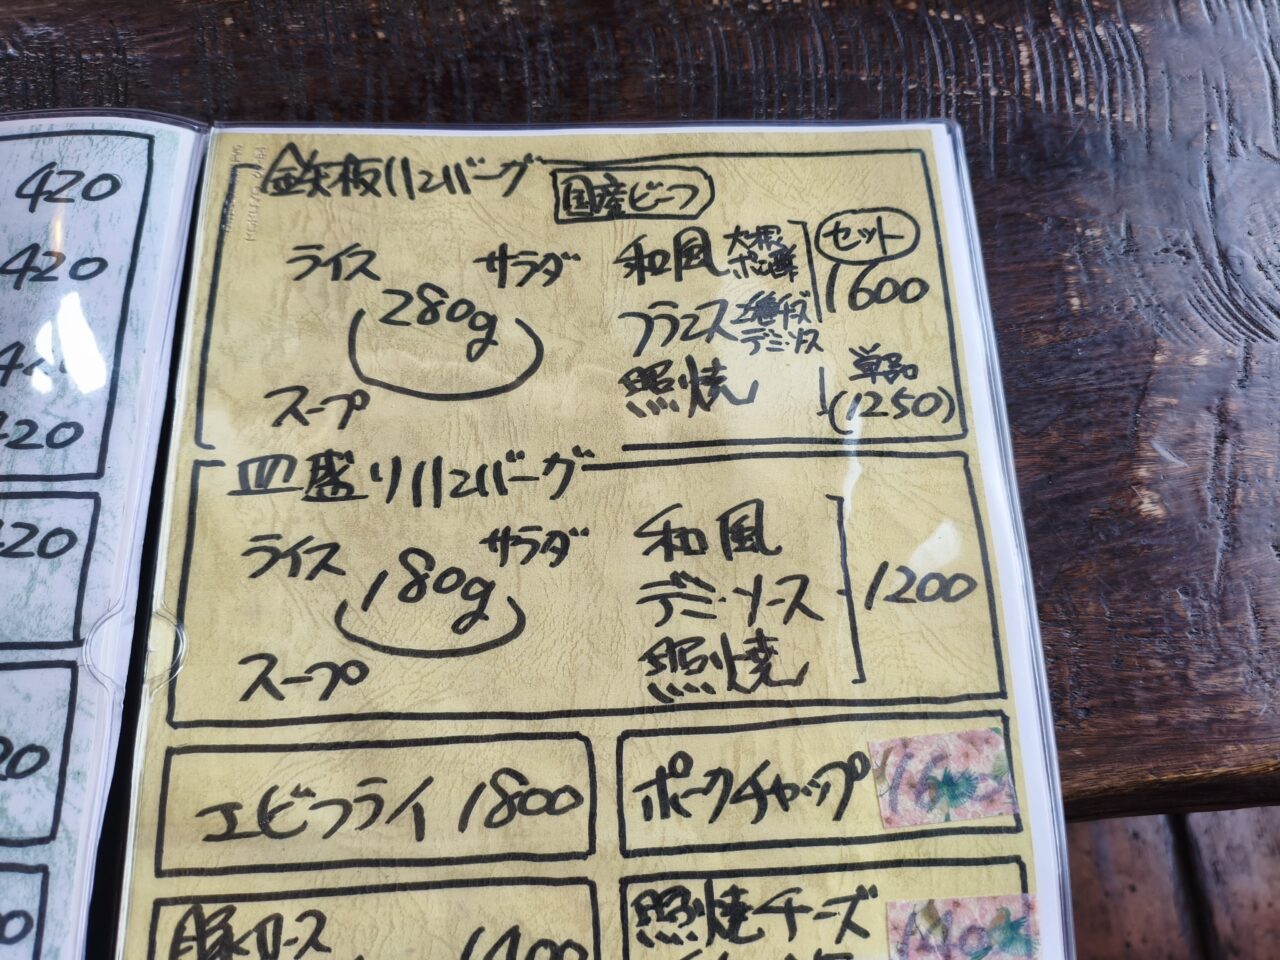 420
420
420
420
鉄板ハンバーグ
国産ビーフ
ライス サラダ
280g
スープ
和風 大根 ポン酢
フランス チーズ デミソース
照焼
セット
1600
単品
(1250)
皿盛りハンバーグ
ライス サラダ
180g
スープ
和風
デミ・ソース
照焼
1200
エビフライ 1800
ポークチャップ
豚ロース
1400
照焼チーズ